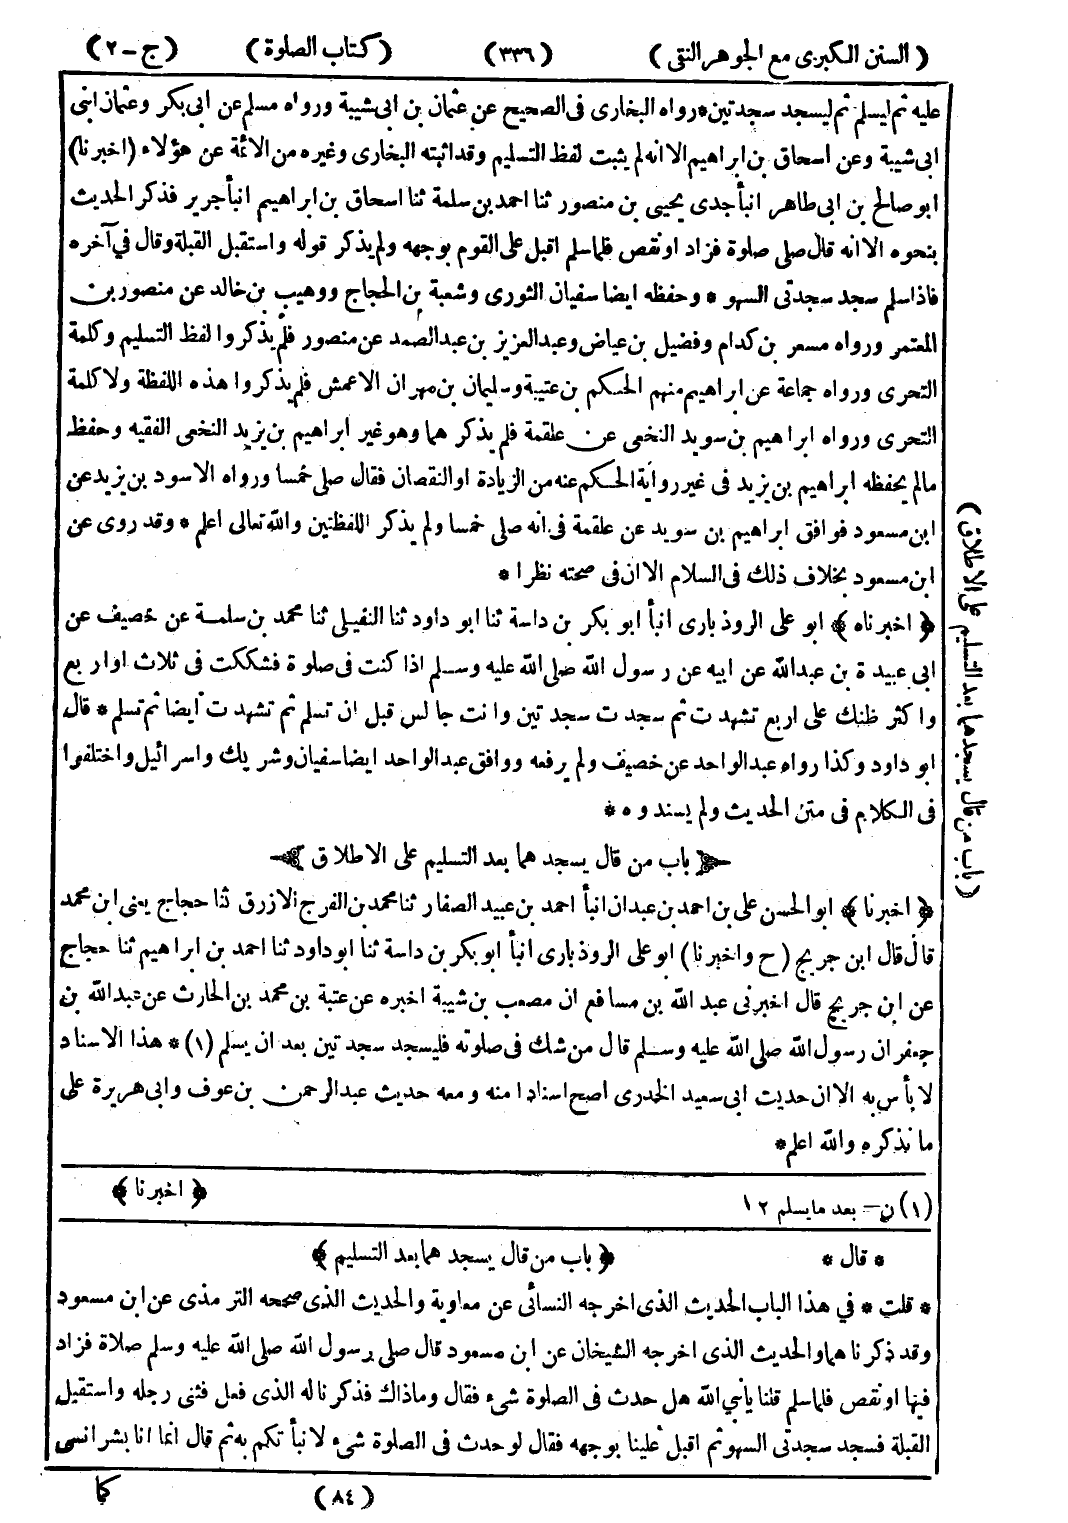 ( السنن الكبرى مع الجوهر النقى ) ( ٣٣٦ ) ( كتاب الصلوة ) ( ج - ٢ )
عليه ثم ليسلم ثم ليسجد سجدتين * رواه البخارى فى الصحيح عن عثمان بن ابى شيبة ورواه مسلم عن ابى بكر وعثمان ابنى
ابى شيبة وعن اسحاق بن ابراهيم الا انه لم يثبت لفظ التسليم وقد اثبته البخارى وغيره من الائمة عن هؤلاء ( اخبرنا )
ابو صالح بن ابى طاهر انبأ جدى يحيى بن منصور ثنا احمد بن سلمة ثنا اسحاق بن ابراهيم انبأ جرير فذكر الحديث
بنحوه الا انه قال صلى صلوة فزاد او نقص فلما سلم اقبل على القوم بوجهه ولم يذكر قوله واستقبل القبلة وقال في آخره
فاذا سلم سجد سجدتى السهو * وحفظه ايضا سفيان الثورى وشعبة بن الحجاج ووهيب بن خالد عن منصور بن
المعتمر ورواه مسعر بن كدام وفضيل بن عياض وعبد العزيز بن عبد الصمد عن منصور فلم يذكروا لفظ التسليم وكلمة
التحرى ورواه جماعة عن ابراهيم منهم الحكم بن عتيبة وسليمان بن مهران الاعمش فلم يذكروا هذه اللفظة ولا كلمة
التحرى ورواه ابراهيم بن سويد النخعى عن علقمة فلم يذكرهما وهو غير ابراهيم بن يزيد النخعى الفقيه وحفظ
مالم يحفظه ابراهيم بن يزيد فى غير رواية الحكم عنه من الزيادة او النقصان فقال صلى خمسا ورواه الاسود بن يزيد عن
ابن مسعود فوافق ابراهيم بن سويد عن علقمة فى انه صلى خمسا ولم يذكر اللفظتين والله تعالى اعلم * وقد روى عن
ابن مسعود بخلاف ذلك فى السلام الا ان فى صحته نظرا *
﴿ اخبرناه ﴾ ابو على الروذبارى انبأ ابو بكر بن داسة ثنا ابو داود ثنا النفيلى ثنا محمد بن سلمة عن خصيف عن
ابى عبيدة بن عبد الله عن ابيه عن رسول الله صلى الله عليه وسلم اذا كنت فى صلوة فشككت فى ثلاث او اربع
واكثر ظنك على اربع تشهدت ثم سجدت سجدتين وانت جالس قبل ان تسلم ثم تشهدت ايضا ثم تسلم * قال
ابو داود وكذا رواه عبد الواحد عن خصيف ولم يرفعه ووافق عبد الواحد ايضا سفيان وشريك واسرائيل واختلفوا
فى الكلام فى متن الحديث ولم يسندوه *
باب من قال يسجدهما بعد التسليم على الاطلاق
( باب من قال يسجدهما بعد التسليم على الاطلاق )
﴿ اخبرنا ﴾ ابو الحسن على بن احمد بن عبدان انبأ احمد بن عبيد الصفار ثنا محمد بن الفرج الازرق ثنا حجاج يعنى ابن محمد
قال قال ابن جريج ( ح واخبرنا ) ابو على الروذبارى انبأ ابو بكر بن داسة ثنا ابو داود ثنا احمد بن ابراهيم ثنا حجاج
عن ابن جريج قال اخبرنى عبد الله بن مسافع ان مصعب بن شيبة اخبره عن عتبة بن محمد بن الحارث عن عبد الله بن
جعفر ان رسول الله صلى الله عليه وسلم قال من شك فى صلوته فليسجد سجدتين بعد ان يسلم (١) * هذا الاسناد
لا بأس به الا ان حديث ابى سعيد الخدرى اصح اسنادا منه ومعه حديث عبد الرحمن بن عوف وابى هريرة على
ما نذكره والله اعلم *
(١) ن - بعد ما يسلم ١٢ ﴿ اخبرنا ﴾
* قال * ﴿ باب من قال يسجدهما بعد التسليم ﴾
* قلت * في هذا الباب الحديث الذى اخرجه النسائى عن معاوية والحديث الذى صححه الترمذى عن ابن مسعود
وقد ذكرناهما والحديث الذى اخرجه الشيخان عن ابن مسعود قال صلى رسول الله صلى الله عليه وسلم صلاة فزاد
فيها او نقص فلما سلم قلنا يا نبي الله هل حدث فى الصلوة شىء فقال وماذاك فذكرنا له الذى فعل فثنى رجله واستقبل
القبلة فسجد سجدتى السهو ثم اقبل علينا بوجهه فقال لو حدث فى الصلوة شىء لانبأتكم به ثم قال انما انا بشر انسى
( ٨٤ ) كما